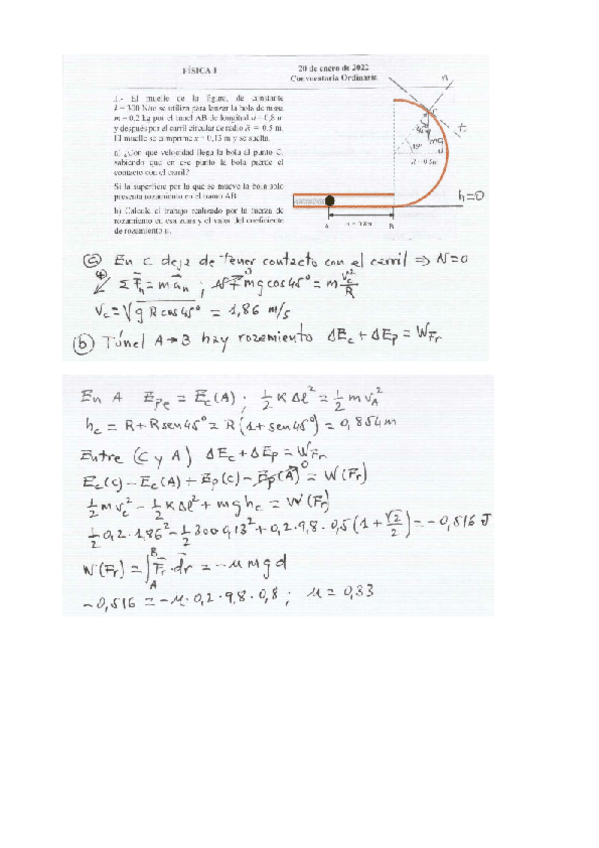 FÍSICA I
20 de enero de 2022
Convocatoria Ordinaria
1.- El muelle de la figura, de constante
k = 300 N/m se utiliza para lanzar la bola de masa
m = 0,2 kg por el túnel AB de longitud d = 0,8 m
y después por el carril circular de radio R = 0.5 m.
El muelle se comprime x = 0,13 m y se suelta.
a) ¿Con que velocidad llega la bola al punto C,
sabiendo que en ese punto la bola pierde el
contacto con el carril?
Si la superficie por la que se mueve la bola solo
presenta rozamiento en el tramo AB
b) Calcule el trabajo realizado por la fuerza de
rozamiento en esa zona y el valor del coeficiente
de rozamiento μ.
n
t
mg
45°
R = 0.5m
h=0
A
B
a) En C deja de tener contacto con el carril ⇒ N=0
ΣFn = m an ; N + mg cos45° = m vc²/R
vc = √(g R cos45°) = 1,86 m/s
b) Túnel A→B hay rozamiento ΔEc + ΔEp = WFr
En A Epe = Ec(A) ; 1/2 K Δl² = 1/2 m vA²
hc = R + R sen45° = R(1 + sen45°) = 0,854 m
Entre (C y A) ΔEc + ΔEp = WFr
Ec(C) − Ec(A) + Ep(C) − Ep(A) = W(Fr)
1/2 m vc² − 1/2 K Δl² + m g hc = W(Fr)
1/2 0,2 · 1,86² − 1/2 300 0,13² + 0,2 · 9,8 · 0,5 (1 + √2/2) = −0,516 J
W(Fr) = ∫AB Fr · dr = −μ m g d
−0,516 = −μ · 0,2 · 9,8 · 0,8 ; μ = 0,33